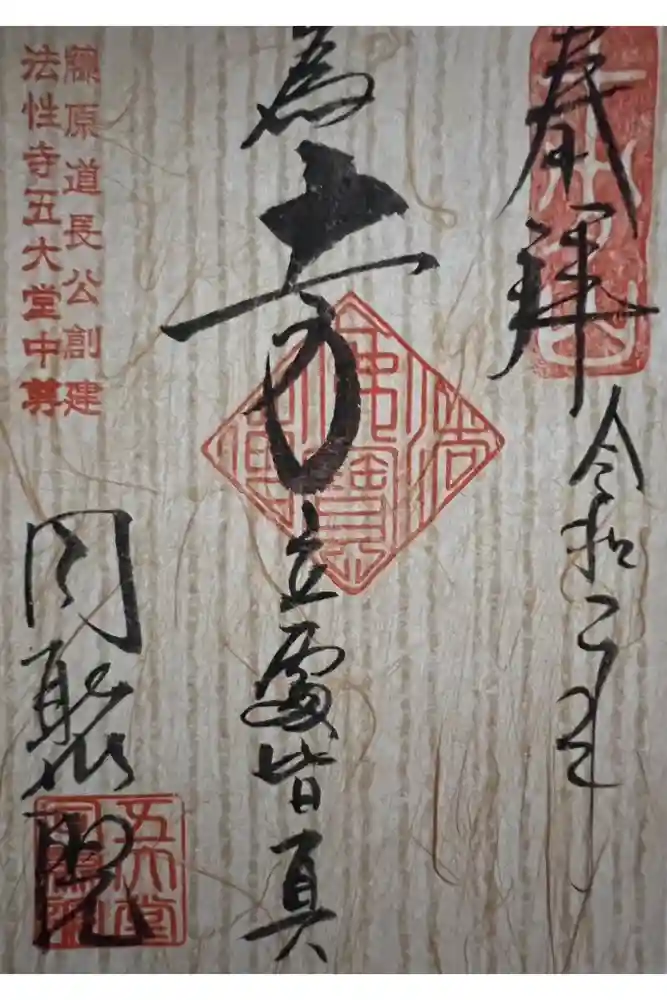 奉拝
令和二年
為
立處皆真
藤原道長公創建
法性寺五大堂中尊
同聚院
五大堂
同聚院